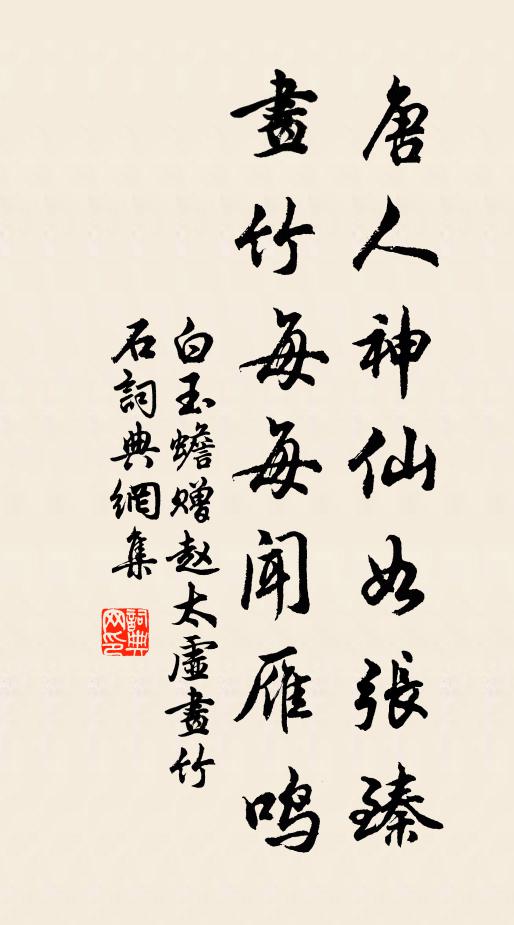 唐人神仙如張臻
畫竹每每聞雁鸣
白玉蟾赠赵太虛畫竹
石詞典網集
詞典网印